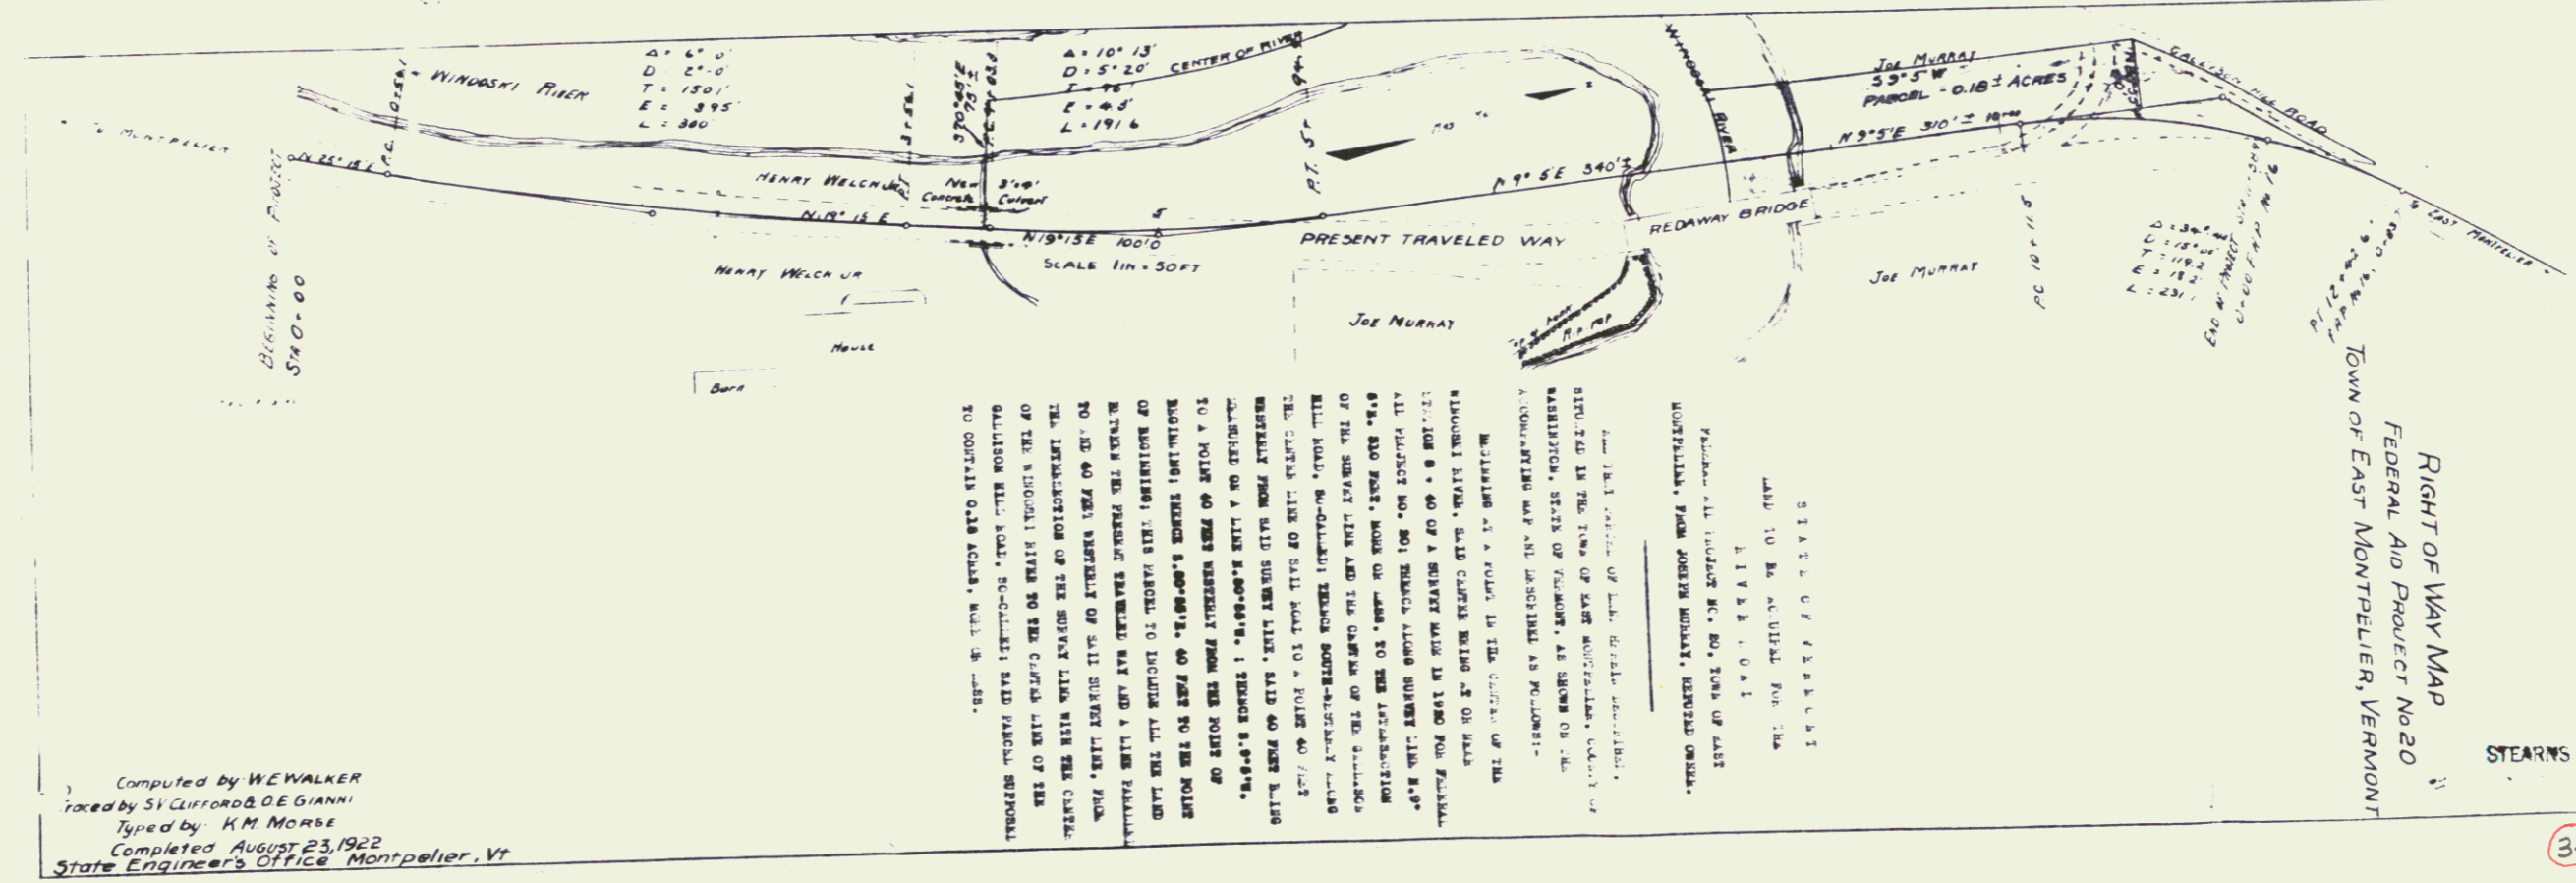 WINOOSKI RIVER
TO MONTPELIER
BEGINNING OF PROJECT
STA 0+00
N 25° 15' E
Δ = 6° 0'
D 2°-0'
T = 1501'
E = 395'
L = 300'
HENRY WELCH JR
N 19° 15 E
New 3'x4'
Concrete Culvert
Δ = 10° 13'
D = 5° 20'
T = 96'
E = 4.3'
L = 191 6
CENTER OF RIVER
N 19° 15 E 100'0
SCALE 1 IN = 50 FT
HENRY WELCH JR
House
Barn
PRESENT TRAVELED WAY
JOE MURRAY
Rip rap
N 9° 5' E 340' ±
REDAWAY BRIDGE
WINOOSKI RIVER
JOE MURRAY
S 9° 5' W
PARCEL - 0.18 ± ACRES
N 9° 5' E 310' ±
GALLISON HILL ROAD
JOE MURRAY
TO EAST MONTPELIER
RIGHT OF WAY MAP
FEDERAL AID PROJECT No 20
TOWN OF EAST MONTPELIER, VERMONT
STEARNS
STATE OF VERMONT
LAND TO BE ACQUIRED FOR THE
RIVER ROAD
FEDERAL AID PROJECT NO. 20, TOWN OF EAST
MONTPELIER, FROM JOSEPH MURRAY, REPUTED OWNER.
ALL THAT PARCEL OF LAND HEREIN DESCRIBED,
SITUATED IN THE TOWN OF EAST MONTPELIER, COUNTY OF
WASHINGTON, STATE OF VERMONT, AS SHOWN ON THE
ACCOMPANYING MAP AND DESCRIBED AS FOLLOWS:-
BEGINNING AT A POINT IN THE CENTER OF THE
WINOOSKI RIVER, SAID CENTER BEING AT OR NEAR
STATION 8 + 40 OF A SURVEY MADE IN 1920 FOR FEDERAL
AID PROJECT NO. 20; THENCE ALONG SURVEY LINE N.9°
5'E. 310 FEET, MORE OR LESS, TO THE INTERSECTION
OF THE SURVEY LINE AND THE CENTER OF THE GALLISON
HILL ROAD, SO-CALLED; THENCE SOUTH-WESTERLY ALONG
THE CENTER LINE OF SAID ROAD TO A POINT 40 FEET
WESTERLY FROM SAID SURVEY LINE, SAID 40 FEET BEING
MEASURED ON A LINE N.80°55'W. ; THENCE S.9°5'W.
TO A POINT 40 FEET WESTERLY FROM THE POINT OF
BEGINNING; THENCE S.80°55'E. 40 FEET TO THE POINT
OF BEGINNING; THIS PARCEL TO INCLUDE ALL THE LAND
BETWEEN THE PRESENT TRAVELED WAY AND A LINE PARALLEL
TO AND 40 FEET WESTERLY OF SAID SURVEY LINE, FROM
THE INTERSECTION OF THE SURVEY LINE WITH THE CENTER
OF THE WINOOSKI RIVER TO THE CENTER LINE OF THE
GALLISON HILL ROAD, SO-CALLED; SAID PARCEL SUPPOSED
TO CONTAIN 0.18 ACRES, MORE OR LESS.
Computed by W.E WALKER
Traced by S.V CLIFFORD & O.E GIANNI
Typed by K M. MORSE
Completed AUGUST 23, 1922
State Engineer's Office Montpelier, Vt